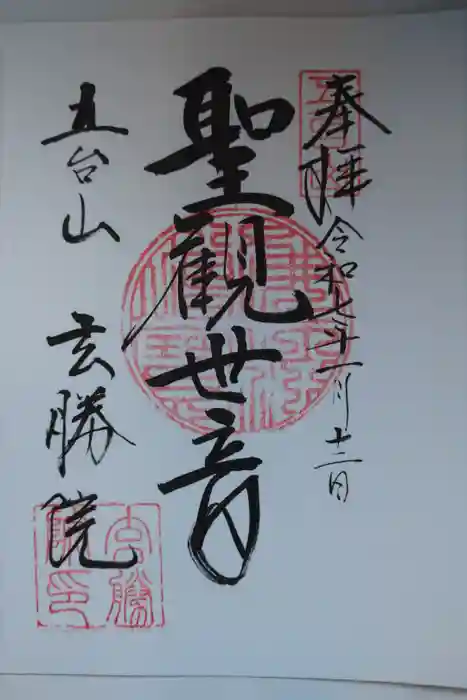 奉拝 令和七年一月十二日
聖観世音
五台山 玄勝院
玄勝院印